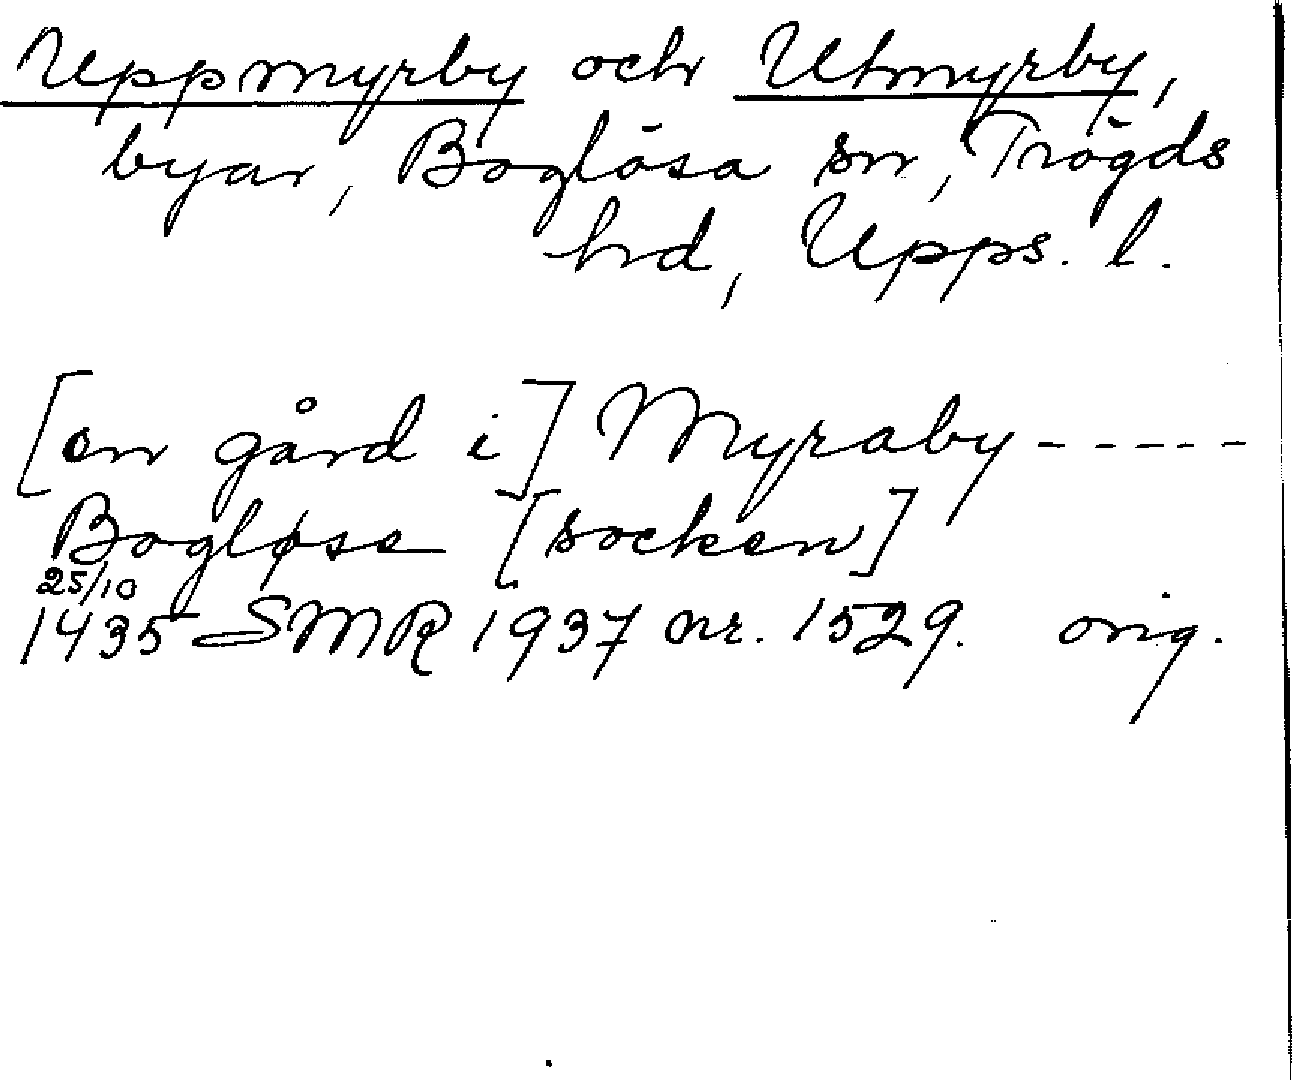 Uppmyrby och Utmyrby,
byar, Boglösa sn, Trögds
hd, Upps. l.
[en gård i] Myraby -----
Bogløse [socken]
25/10
1435 SMR 1937 nr. 1529. orig.